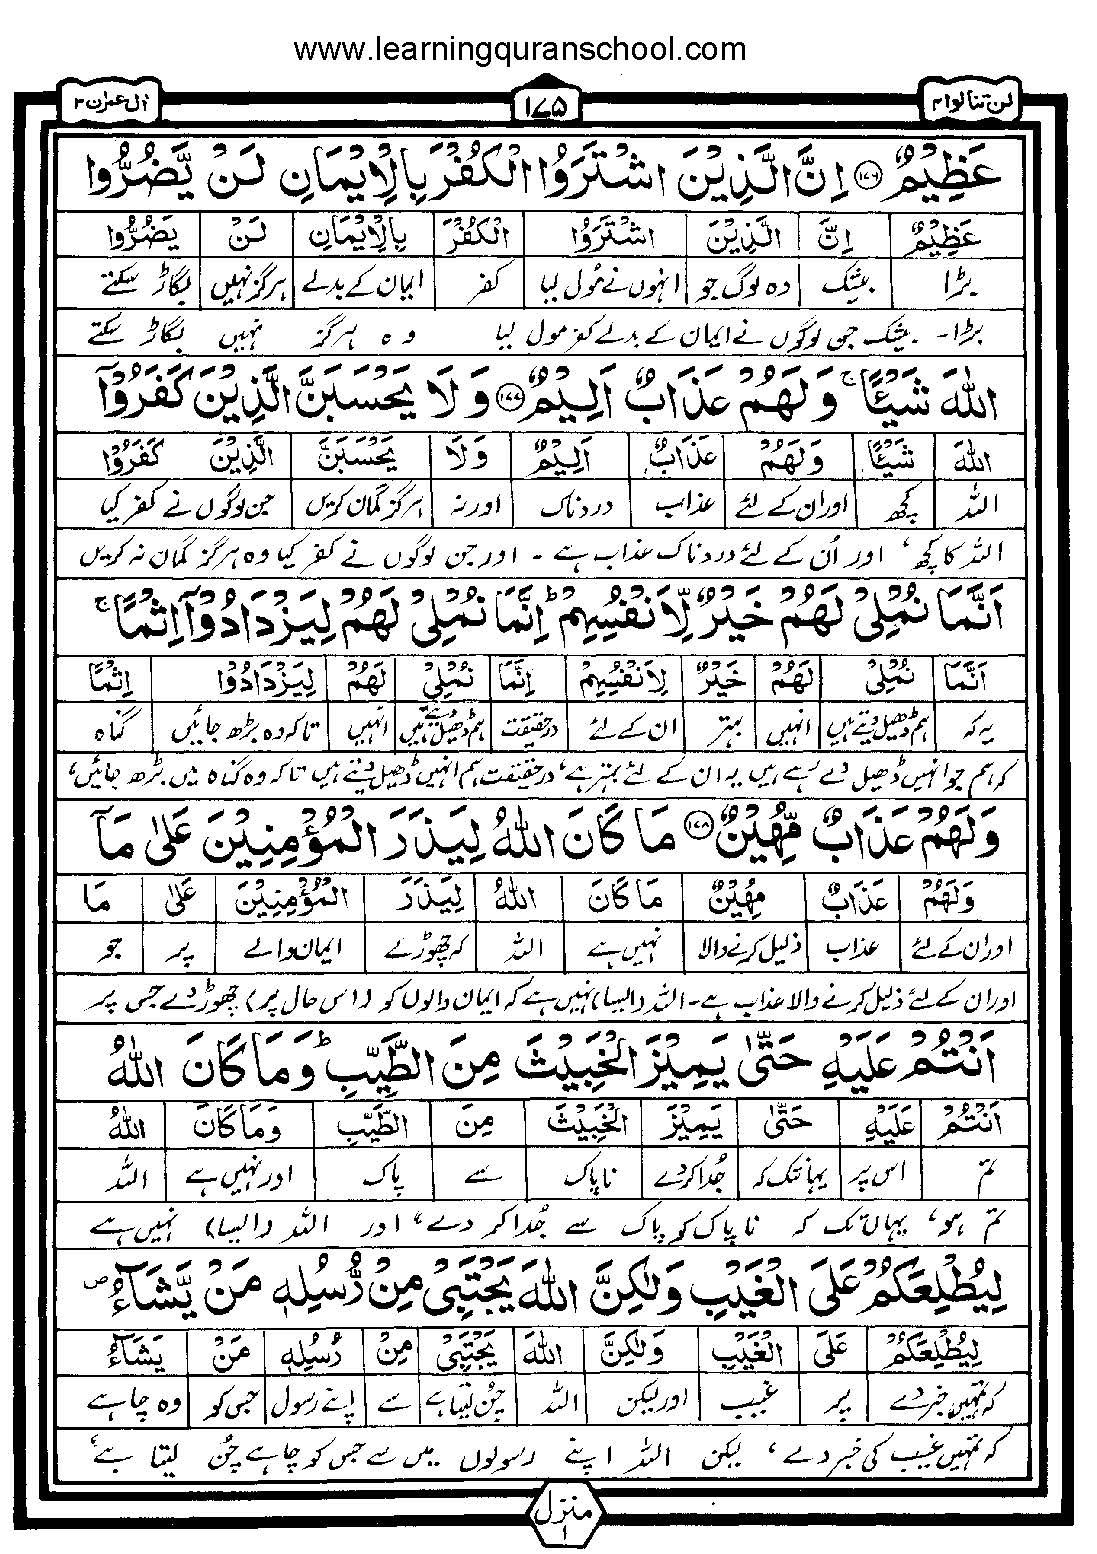 www.learningquranschool.com
لن تنالوا ۴ ۱۷۵ اٰل عمرٰن ۳
عَظِيْمٌ ﴿۱۷۶﴾ اِنَّ الَّذِيْنَ اشْتَرَوُا الْكُفْرَ بِالْاِيْمَانِ لَنْ يَّضُرُّوا
عَظِيْمٌ اِنَّ الَّذِيْنَ اشْتَرَوُا الْكُفْرَ بِالْاِيْمَانِ لَنْ يَضُرُّوا
بڑا بیشک وہ لوگ جو انہوں نے مُول لیا کفر ایمان کے بدلے ہرگز نہیں بگاڑ سکتے
بڑا۔ بیشک جن لوگوں نے ایمان کے بدلے کفر مول لیا وہ ہرگز نہیں بگاڑ سکتے
اللّٰهَ شَيْـًٔا ۚ وَلَهُمْ عَذَابٌ اَلِيْمٌ ﴿۱۷۷﴾ وَلَا يَحْسَبَنَّ الَّذِيْنَ كَفَرُوْٓا
اللّٰهَ شَيْـًٔا وَلَهُمْ عَذَابٌ اَلِيْمٌ وَلَا يَحْسَبَنَّ الَّذِيْنَ كَفَرُوْا
اللہ کچھ اور ان کے لئے عذاب دردناک اور نہ ہرگز گمان کریں جن لوگوں نے کفر کیا
اللہ کا کچھ، اور اُن کے لئے دردناک عذاب ہے ۔ اور جن لوگوں نے کفر کیا وہ ہرگز گمان نہ کریں
اَنَّمَا نُمْلِيْ لَهُمْ خَيْرٌ لِّاَنْفُسِهِمْ ؕ اِنَّمَا نُمْلِيْ لَهُمْ لِيَزْدَادُوْٓا اِثْمًا ۚ
اَنَّمَا نُمْلِيْ لَهُمْ خَيْرٌ لِاَنْفُسِهِمْ اِنَّمَا نُمْلِيْ لَهُمْ لِيَزْدَادُوْا اِثْمًا
یہ کہ ہم ڈھیل دیتے ہیں انہیں بہتر ان کے لئے درحقیقت ہم ڈھیل دیتے ہیں انہیں تاکہ وہ بڑھ جائیں گناہ
کہ ہم جو انہیں ڈھیل دے رہے ہیں یہ ان کے لئے بہتر ہے، درحقیقت ہم انہیں ڈھیل دیتے ہیں تاکہ وہ گناہ میں بڑھ جائیں،
وَلَهُمْ عَذَابٌ مُّهِيْنٌ ﴿۱۷۸﴾ مَا كَانَ اللّٰهُ لِيَذَرَ الْمُؤْمِنِيْنَ عَلٰى مَآ
وَلَهُمْ عَذَابٌ مُهِيْنٌ مَا كَانَ اللّٰهُ لِيَذَرَ الْمُؤْمِنِيْنَ عَلٰى مَا
اور ان کے لئے عذاب ذلیل کرنے والا نہیں ہے اللہ کہ چھوڑے ایمان والے پر جو
اور ان کے لئے ذلیل کرنے والا عذاب ہے۔ اللہ (ایسا) نہیں ہے کہ ایمان والوں کو (اس حال پر) چھوڑ دے جس پر
اَنْتُمْ عَلَيْهِ حَتّٰى يَمِيْزَ الْخَبِيْثَ مِنَ الطَّيِّبِ ؕ وَمَا كَانَ اللّٰهُ
اَنْتُمْ عَلَيْهِ حَتّٰى يَمِيْزَ الْخَبِيْثَ مِنَ الطَّيِّبِ وَمَا كَانَ اللّٰهُ
تم اس پر یہانتک کہ جُدا کر دے ناپاک سے پاک اور نہیں ہے اللہ
تم ہو، یہاں تک کہ ناپاک کو پاک سے جُدا کر دے، اور اللہ (ایسا) نہیں ہے
لِيُطْلِعَكُمْ عَلَى الْغَيْبِ وَلٰكِنَّ اللّٰهَ يَجْتَبِيْ مِنْ رُّسُلِهٖ مَنْ يَّشَآءُ ۖ
لِيُطْلِعَكُمْ عَلَى الْغَيْبِ وَلٰكِنَّ اللّٰهَ يَجْتَبِيْ مِنْ رُسُلِهٖ مَنْ يَشَآءُ
کہ تمہیں خبر دے پر غیب اور لیکن اللہ چُن لیتا ہے سے اپنے رسول جس کو وہ چاہے
کہ تمہیں غیب کی خبر دے، لیکن اللہ اپنے رسولوں میں سے جس کو چاہے چُن لیتا ہے،
منزل ۱